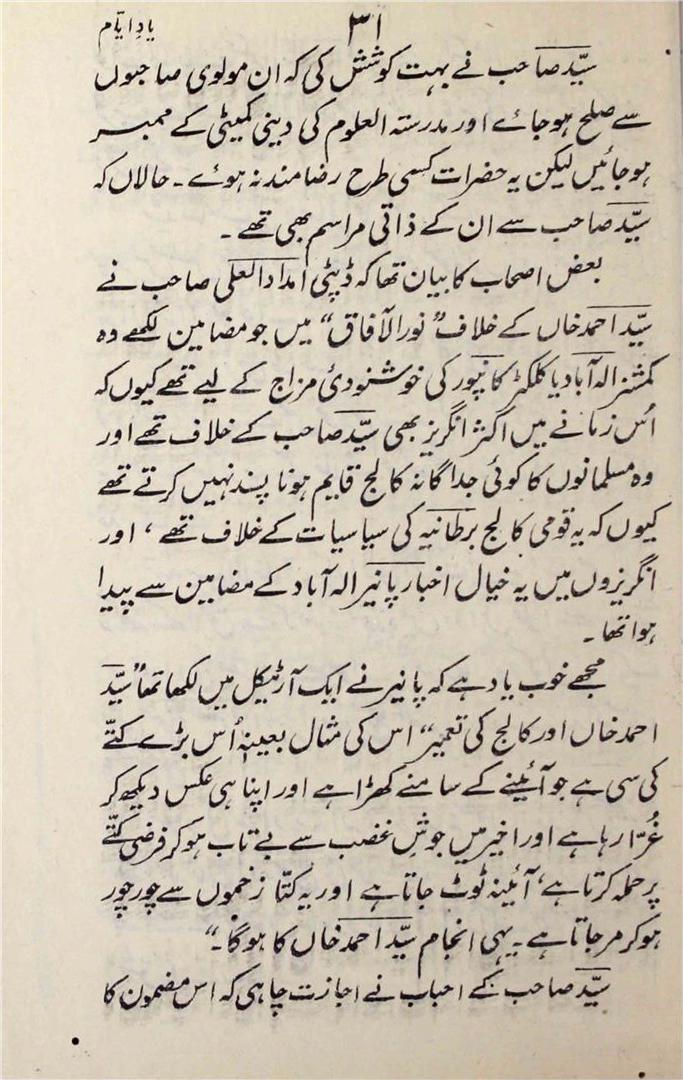 ۳۱
یادِ ایّام
سیّد صاحب نے بہت کوشش کی کہ ان مولوی صاحبوں
سے صلح ہو جائے اور مدرستہ العلوم کی دینی کمیٹی کے ممبر
ہو جائیں لیکن یہ حضرات کسی طرح رضامند نہ ہوئے۔ حالاں کہ
سیّد صاحب سے ان کے ذاتی مراسم بھی تھے۔
بعض اصحاب کا بیان تھا کہ ڈپٹی امداد العلی صاحب نے
سیّد احمد خاں کے خلاف ”نور الآفاق“ میں جو مضامین لکھے وہ
کمشنر الہ آباد یا کلکٹر کانپور کی خوشنودیٔ مزاج کے لیے تھے کیوں کہ
اُس زمانے میں اکثر انگریز بھی سیّد صاحب کے خلاف تھے اور
وہ مسلمانوں کا کوئی جداگانہ کالج قایم ہونا پسند نہیں کرتے تھے
کیوں کہ یہ قومی کالج برطانیہ کی سیاسیات کے خلاف تھے، اور
انگریزوں میں یہ خیال اخبار پانیر الہ آباد کے مضامین سے پیدا
ہوا تھا۔
مجھے خوب یاد ہے کہ پانیر نے ایک آرٹیکل میں لکھا تھا ”سیّد
احمد خاں اور کالج کی تعمیر“ اس کی مثال بعینہٖ اُس بڑے کتّے
کی سی ہے جو آئینے کے سامنے کھڑا ہے اور اپنا ہی عکس دیکھ کر
غُرّا رہا ہے اور اخیر میں جوشِ غضب سے بے تاب ہو کر فرضی کتّے
پر حملہ کرتا ہے، آئینہ ٹوٹ جاتا ہے اور یہ کتّا زخموں سے چور چور
ہو کر مر جاتا ہے۔ یہی انجام سیّد احمد خاں کا ہو گا۔“
سیّد صاحب کے احباب نے اجازت چاہی کہ اس مضمون کا